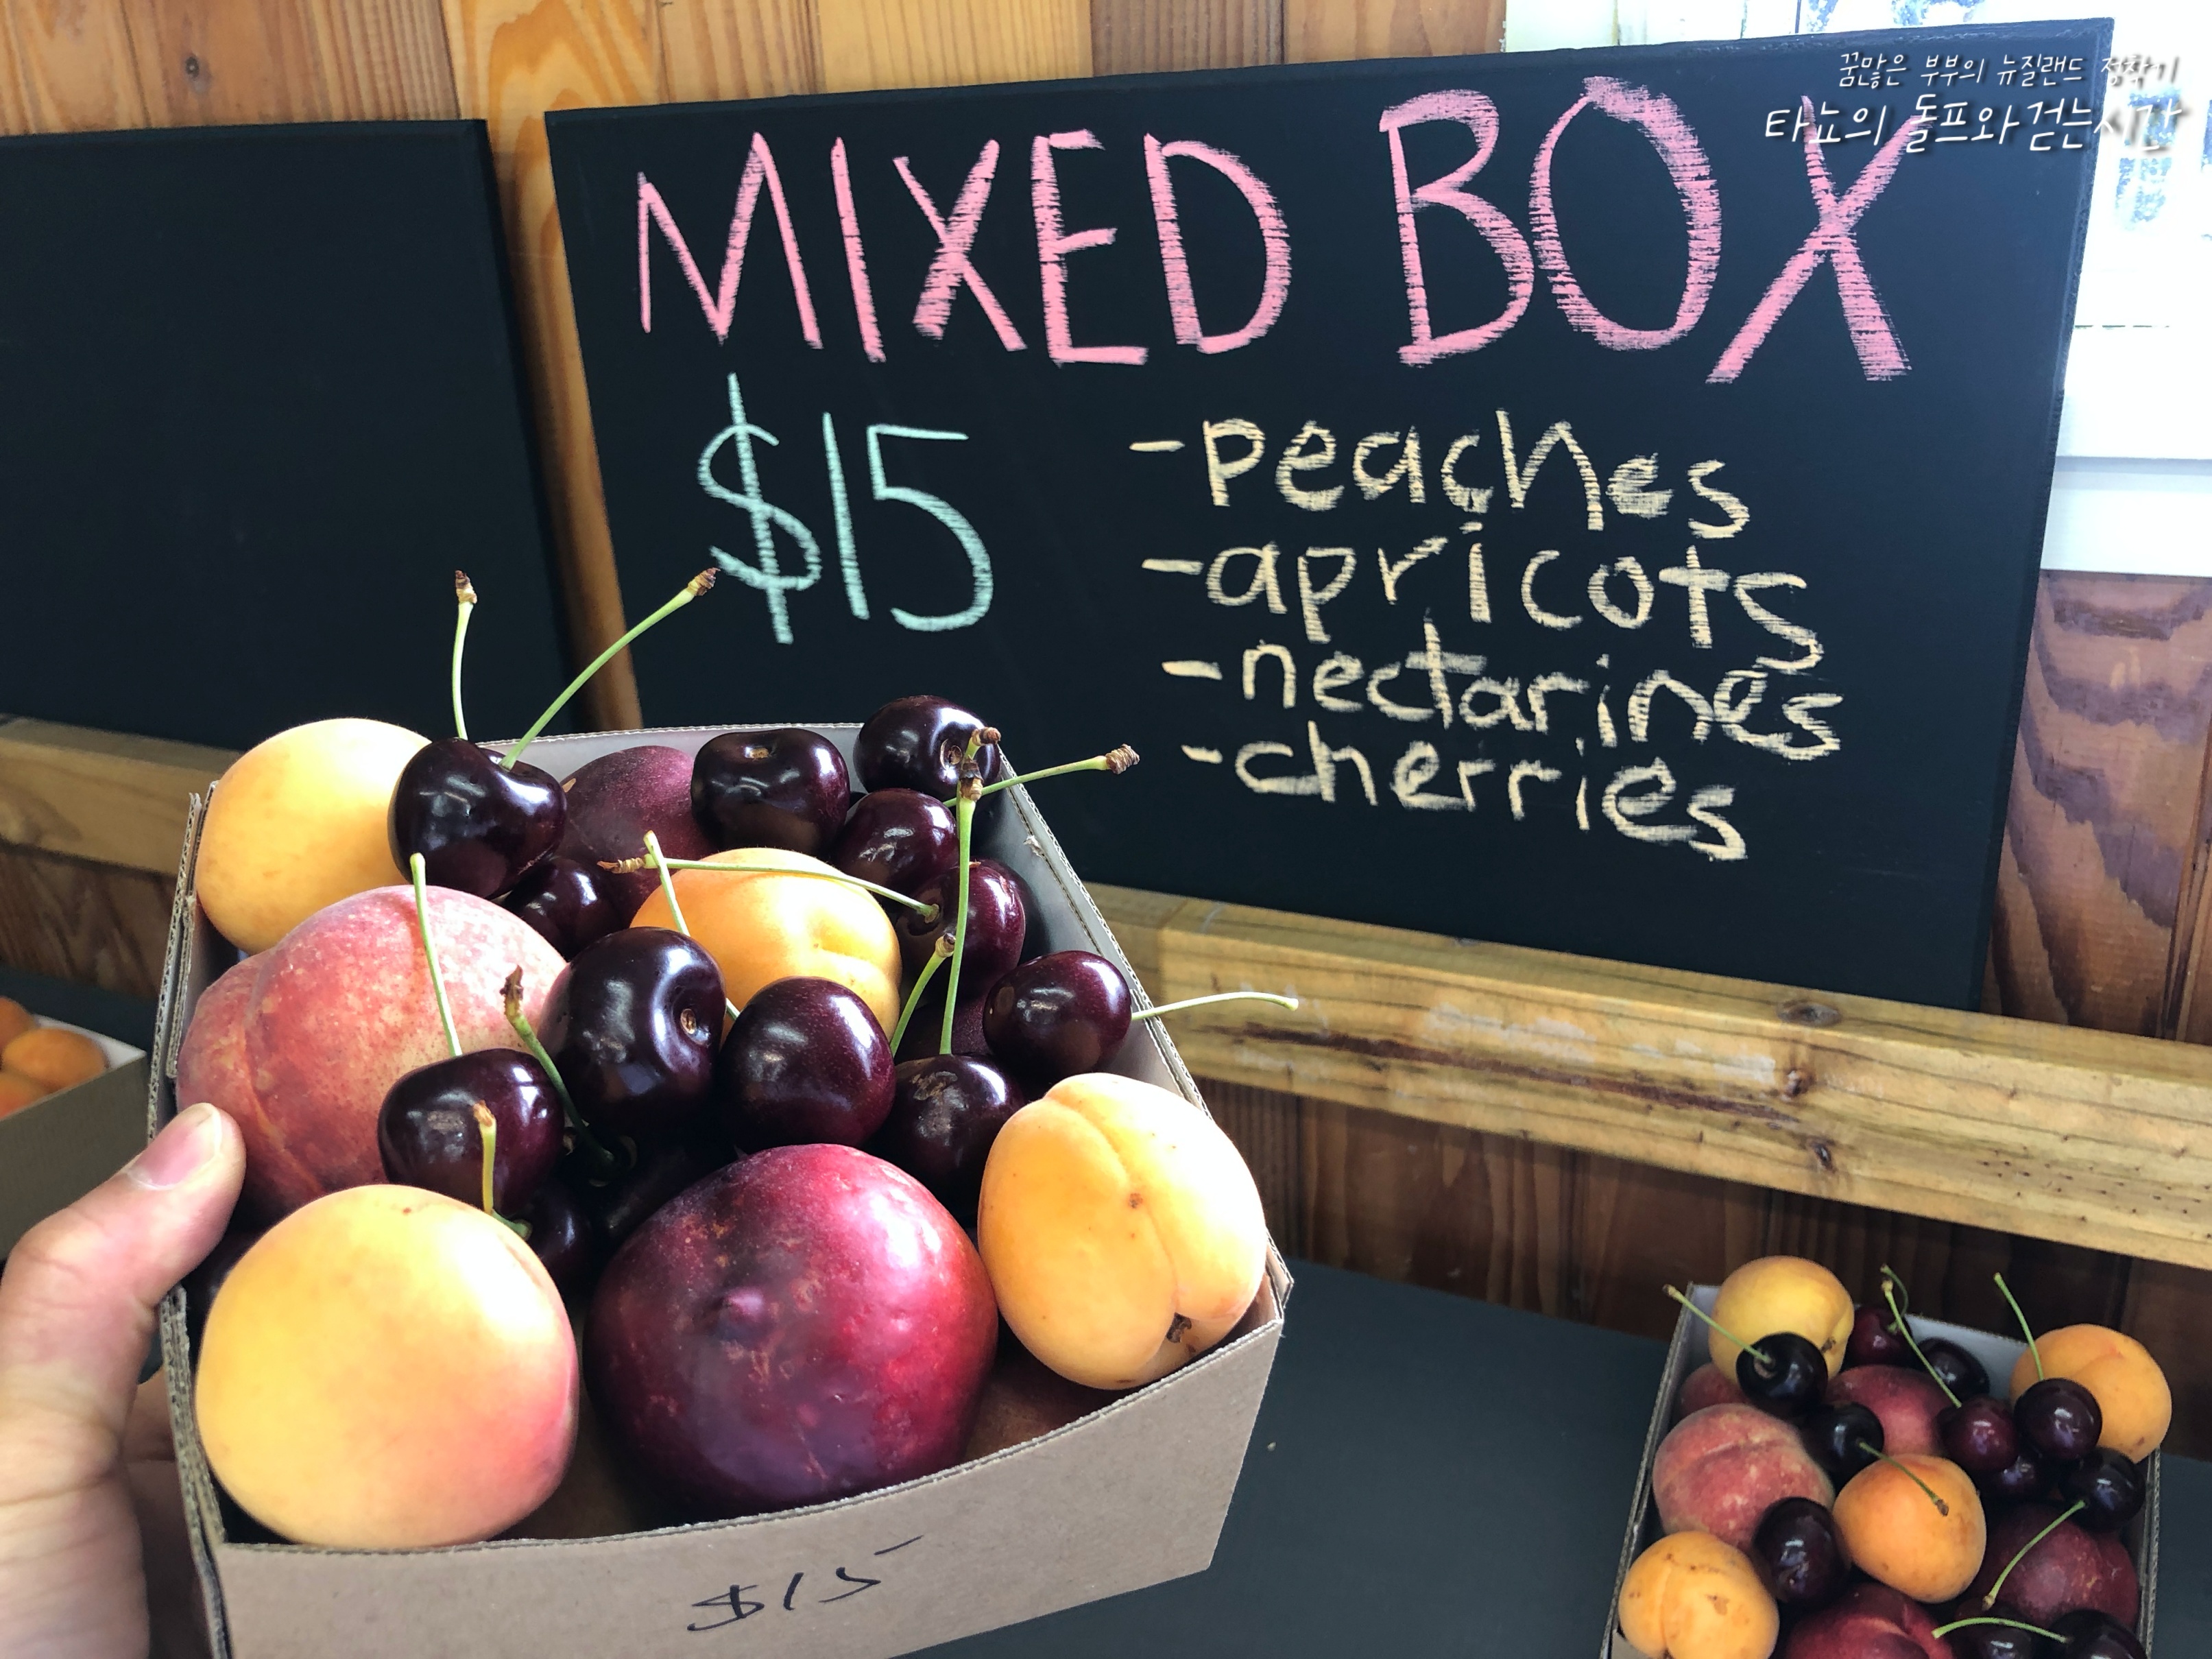 꿈많은 부부의 뉴질랜드 정착기
타뇨의 돌프와 걷는시간
MIXED BOX
$15
-peaches
-apricots
-nectarines
-cherries
$15